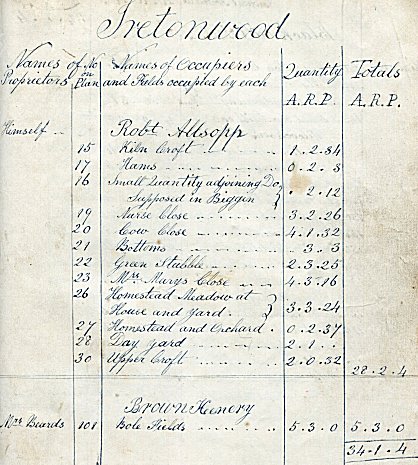 Iretonwood
Names of Proprietors No on Plan Names of Occupiers and Fields occupied by each Quantity A. R. P. Totals A. R. P.
Himself .. Robt Allsopp
15 Kiln Croft 1 . 2 . 34
17 Hams 0 . 2 . 8
16 Small Quantity adjoining Do
Supposed in Biggin . 2 . 12
19 Narse Close 3 . 2 . 26
20 Cow Close 4 . 1 . 32
21 Bottoms . 3 . 3
22 Green Stubble 2 . 3 . 25
23 Mrs Marys Close 4 . 3 . 16
26 Homestead Meadow at
House and Yard . 3 . 3 . 24
27 Homestead and Orchard . 0 . 2 . 37
28 Day Yard 2 . 1 . .
30 Upper Croft 2 . 0 . 32
28 . 2 . 4
Brown Henery
Mrs Beards 101 Bole Fields 5 . 3 . 0 5 . 3 . 0
34 . 1 . 4